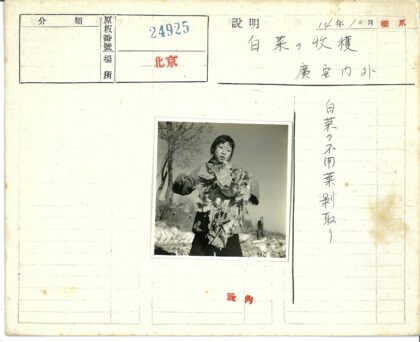 分類
原板番號
場所
24925
北京
説明
14年10月
白菜の收穫
廣安内外
白菜の不用葉剥取り